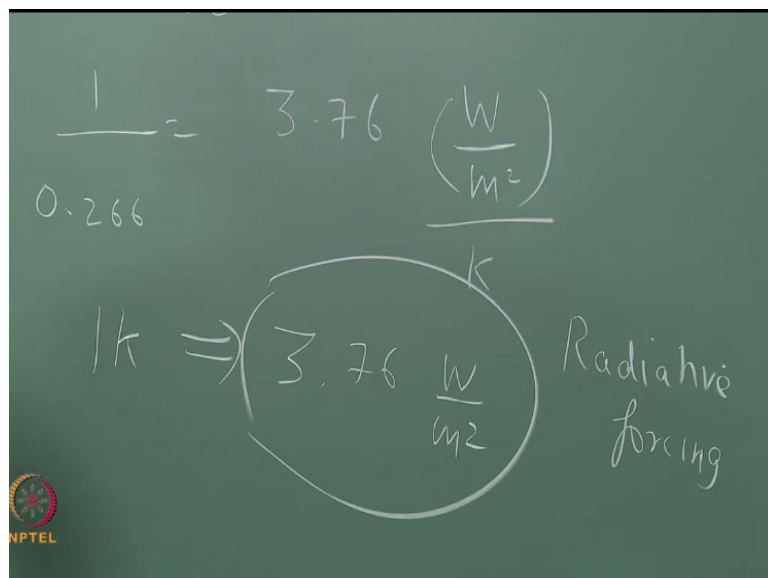 1/0.266 = 3.76 (W/m²)/K
1K ⇒ 3.76 W/m²
Radiative
forcing
NPTEL